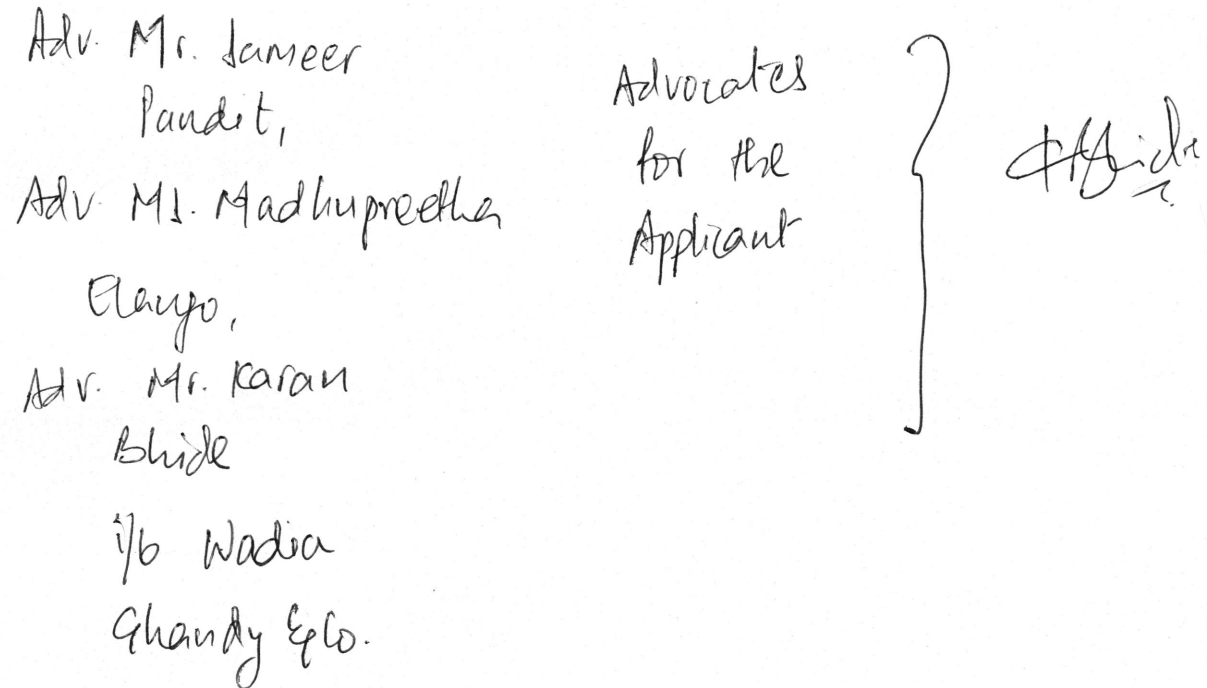 Adv. Mr. Sameer
Pandit,
Adv Ms. Madhupreetha
Elango,
Adv. Mr. Karan
Bhide
i/b Wadia
Ghandy & Co.
Advocates
for the
Applicant